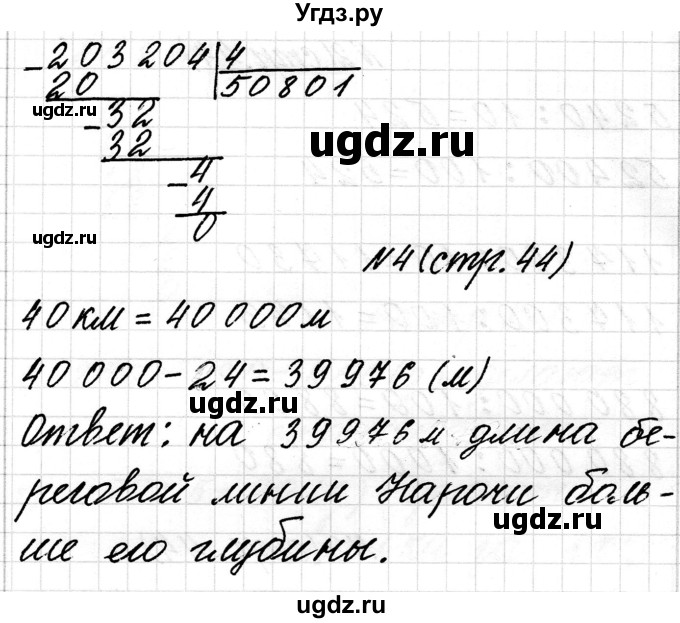 Угдз.ру
- 203204 | 4
20 50801
ugdz.ru
- 32
32
ugdz.ru
- 4
4
ugdz.ru
0
№4 (стр. 44)
40 км = 40 000 м
40 000 - 24 = 39 976 (м)
ugdz.ru
Ответ: на 39976 м длина бе-
реговой линии Нарочи боль-
ugdz.ru
ше его глубины.
ugdz.ru